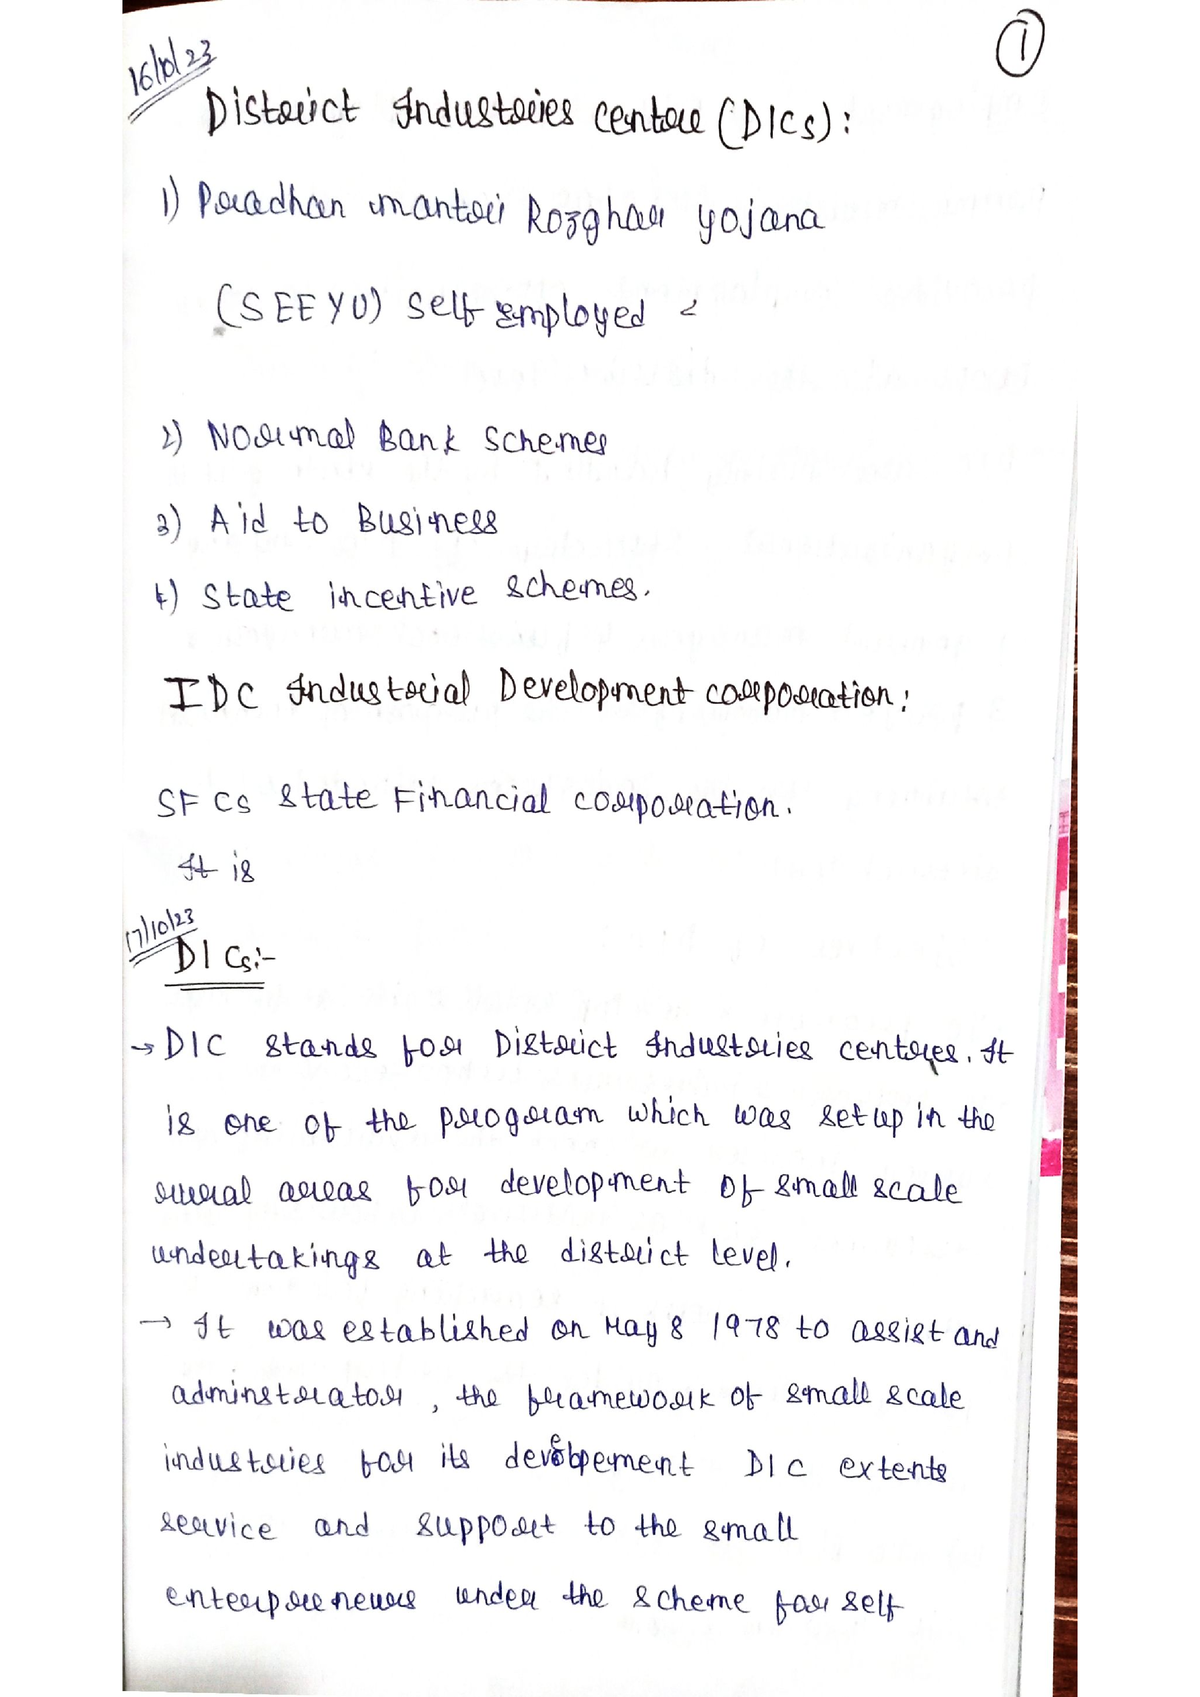 16/10/23
1
District Industries Centre (DICs):
1) Pradhan mantri Rozghar yojana
(SEEYU) Self Employed &
2) Normal Bank Schemes
3) Aid to Business
4) State incentive schemes.
IDC Industrial Development corporation:
SFCs State Financial corporation.
It is
17/10/23
DICs:-
→ DIC stands for District Industries centres. It
is one of the program which was set up in the
rural areas for development of small scale
undertakings at the district level.
→ It was established on May 8 1978 to assist and
adminstrator, the framework of small scale
industries for its development DIC extents
service and support to the small
enterpreneurs under the scheme for self